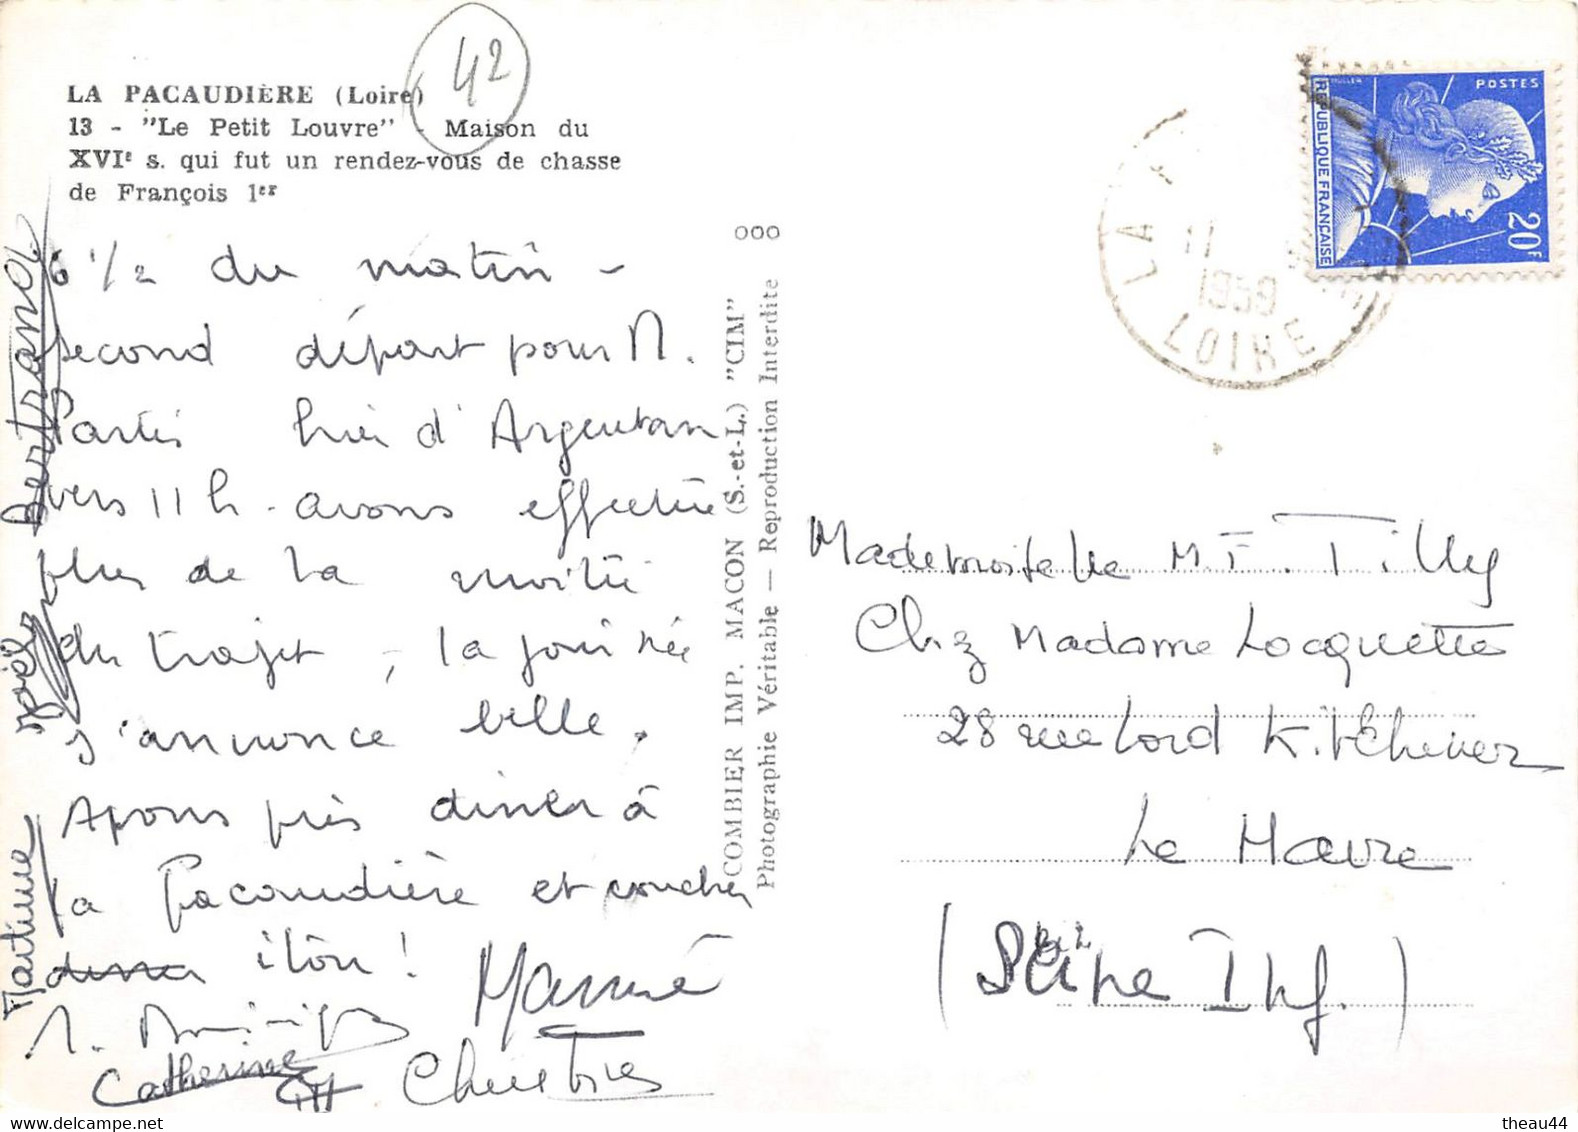 42
LA PACAUDIÈRE (Loire)
13 - "Le Petit Louvre" - Maison du
XVIe s. qui fut un rendez-vous de chasse
de François 1er
6 1/2 du matin -
second départ pour M.
Partis hier d'Argentan
vers 11 h - avons effectué
plus de la moitié
du trajet, la journée
s'annonce belle.
Avons très dîner à
la Pacaudière et coucher
Catherine Christine
Martine
Joël
Bertrand
000
COMBIER IMP. MACON (S.-et-L.) "CIM"
Photographie Véritable — Reproduction Interdite
MULLER POSTES
REPUBLIQUE FRANÇAISE
20F
LA
11
1959
LOIRE
Mademoiselle M. F. Tilly
Chez Madame Locquette
28 rue Lord Kitchener
Le Havre
(Seine Inf.)
theau44